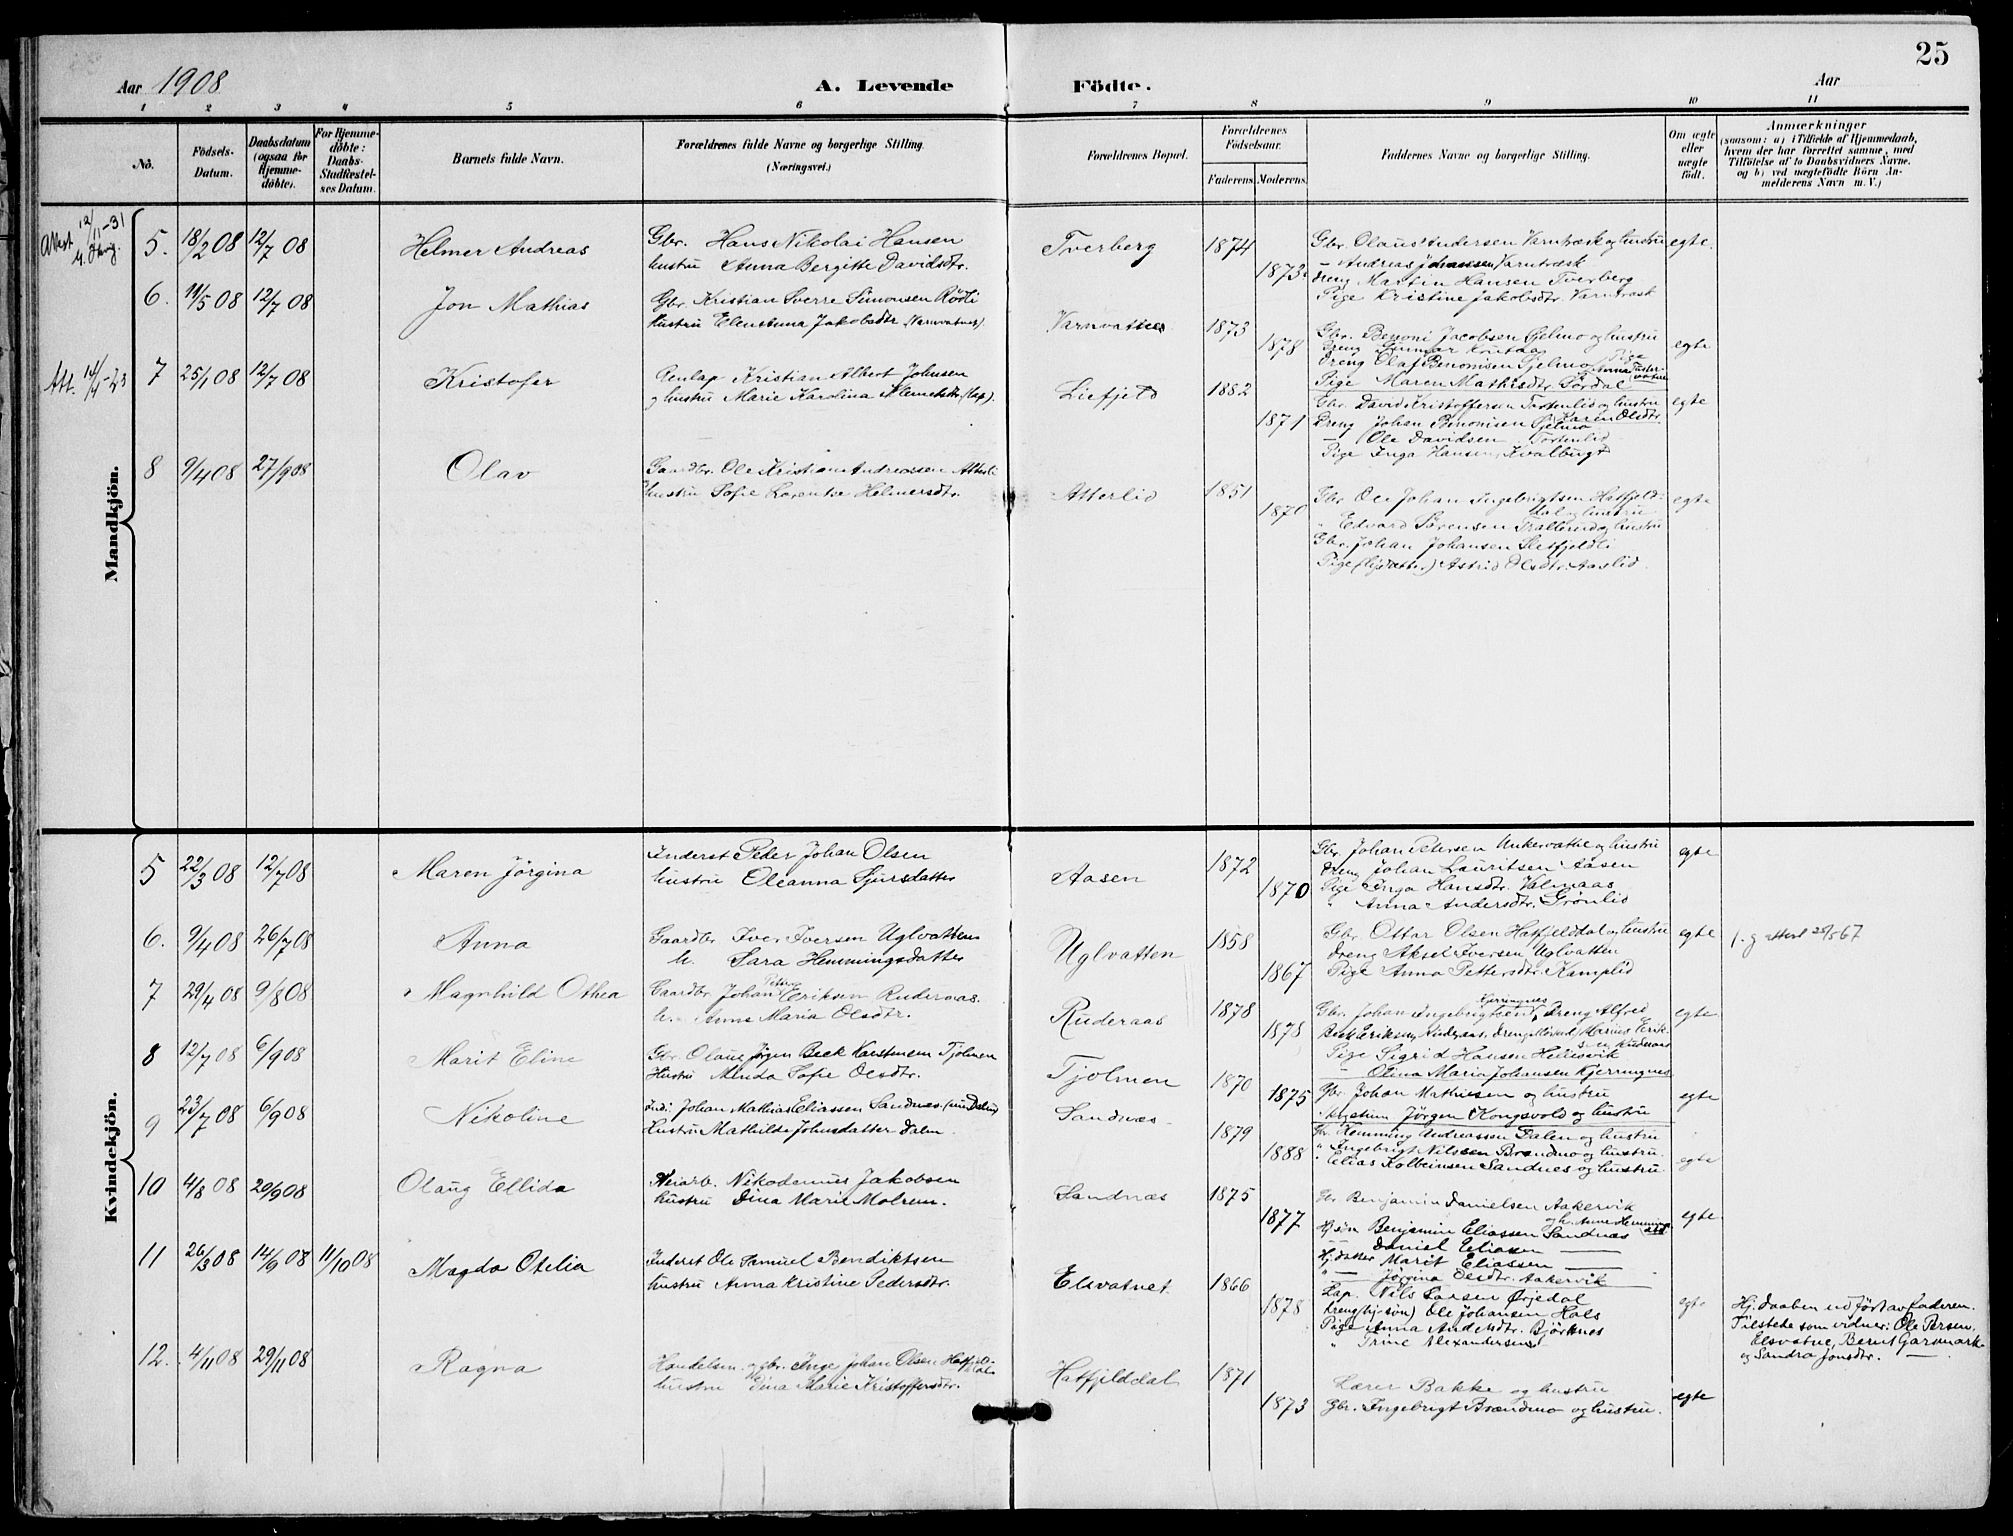 25
Aar 1908
A. Levende Födte.
Aar
1 2 3 4 5 6 7 8 9 10 11
No.
Födsels-Datum.
Daabsdatum (ogsaa for Hjemme-döbte).
For Hjemme-döbte: Daabs-Stadfæstel-ses Datum.
Barnets fulde Navn.
Forældrenes fulde Navne og borgerlige Stilling. (Næringsvei.)
Forældrenes Bopæl.
Forældrenes Födselsaar.
Faderens. Moderens.
Faddernes Navne og borgerlige Stilling.
Om ægte eller uægte födt.
Anmærkninger
(saasom: a) i Tilfælde af Hjemmedaab, hvem der har forrettet samme, med Tilföielse af to Daabsvidners Navne. og b) ved uægtefödte Börn An-melderens Navn m. V.)
Mandkjön.
Attest 12/11-31
5. 18/2 08 12/7 08 Helmer Andreas
Gbr. Hans Nikolai Hansen
hustru Anna Bergitte Davidsdtr.
Tverberg 1874 1873
Gbr. Olaus Andersen Varntræsk og hustru
- Andreas Johansen Varntræsk
Dreng Martin Hansen Tverberg
Pige Kristine Jakobsdtr. Varntræsk
egte.
6. 11/5 08 12/7 08 Jon Mathias
Gbr. Kristian Sverre Simonsen Rödli
Hustru Elen Anna Jakobsdtr (Varnvatnes)
Varnvattnes 1873 1878
Gbr. Benoni Jacobsen Gjelmo og hustru
Dreng Olaf Benonisen Sjelmo
Pige Maren Mathisdtr. Sördal
egte
Att. 14/4-23
7 25/1 08 12/7 08 Kristofer
Renlap Kristian Albert Johnsen
og hustru Marie Karolina Klemetsdtr. (lap).
Liefjeld 1882 1871
Gbr. David Kristoffersen Tortenlid og hustru
Dreng Johan Benonisen Sjelmo Karen Olsdtr.
- Ole Davidsen Tortenlid
Pige Inga Hansen, Kvalbugt
egte
8 9/4 08 27/9 08 Olav
Gaardbr. Ole Kristian Andreassen Atterli
hustru Sofie Lorentse Helmersdtr.
Atterlid 1851 1870
Gbr. Ole Johan Ingebrigtsen Hatfjeld-
dal og hustru.
" Edvard Sörensen Trallerud og hustru
Gbr. Johan Johansen Sletfjeldli
Pige (Gjdatter) Astrid Olsdtr. Aaslid.
egte
Kvindekjön.
5 22/3 08 12/7 08 Maren Jörgina
Inderst Peder Johan Olsen
hustru Oleanna Sjursdatter
Aasen 1872 1870
Gbr. Johan Petersen Unkervatne og hustru
Dreng Johan Lauritsen Aasen
Pige Inga Hansdtr. Valmaas
" Anna Andersdtr. Grönlid
egte
6. 9/4 08 26/7 08 Anna
Gaardbr Iver Iversen Uglvatten
h. Sara Hemmingsdatter
Uglvatten 1858 1867
Gbr. Ottar Olsen Hatfjelddal og hustru
Dreng Aksel Iversen Uglvatten
Pige Anna Pettersdtr. Kamplid
egte
7 29/4 08 9/8 08 Magnhild Othea
Gaardbr Johan Eriksen Ruderaas.
h. Anne Maria Olsdtr.
Ruderaas 1878 1878
Gbr. Johan Ingebrigtsen Kjerringnes, Dreng Alfred
Pige Sigrid Hansen Hellesvik
- Olina Maria Johansen Kjerringnes
egte.
8 12/7 08 6/9 08 Marit Eline
Gbr. Olaus Jörgen Beck Kaustmem Tjolmen
Hustru Minda Sofie Olsdtr.
Tjolmen 1870 1875
Gbr. Johan Mathiesen og hustru
Jörgen Kongsvold og hustru
egte
9 23/7 08 6/9 08 Nikoline
Ind. Johan Mathias Eliassen Sandnæs
Hustru Mathilde Johnsdatter Dalen.
Sandnæs 1879 1888
Gbr. Hemming Andreassen Dalen og hustru
" Ingebrigt Nilssen Brændmo og hustru.
" Elias Kolbeinsen Sandnes og hustru
egte
10 4/8 08 20/9 08 Olaug Ellida
Veiarb. Nikodemus Jakobsen
hustru Dina Marie Molrem.
Sandnæs 1875 1877
Gbr Benjamin Danielsen Aakervik
Hj. sön Benjamin Eliassen Sandnæs
Daniel Eliassen
Hj. datter Marit Eliassen
" Jörgina Olsdtr. Aakervik
egte
11 26/3 08 14/9 08 11/10 08 Magda Otelia
Inderst Ole Samuel Bendiktsen
hustru Anna Kristine Pedersdtr.
Elsvatnet 1866 1878
Lap. Nils Larsen Örjedal
Dreng (hj. sön) Ole Johansen Hals
Pige Anna Andersdtr. Björknes
" Trine Alexandersen
egte
Hj. daaben udført av faderen.
Tilstede som vidner: Ole Persen,
Elsvatne, Bernt Garsmark
og Sandra Jonsdtr.
12. 4/11 08 29/11 08 Ragna
Handelsm. og gbr. Inge Johan Olsen Hatfjelddal
hustru Edna Marie Kristoffersdtr.
Hatfjelddal 1871 1873
Lærer Bakke og hustru
Gbr. Ingebrigt Brændmo og hustru.
egte